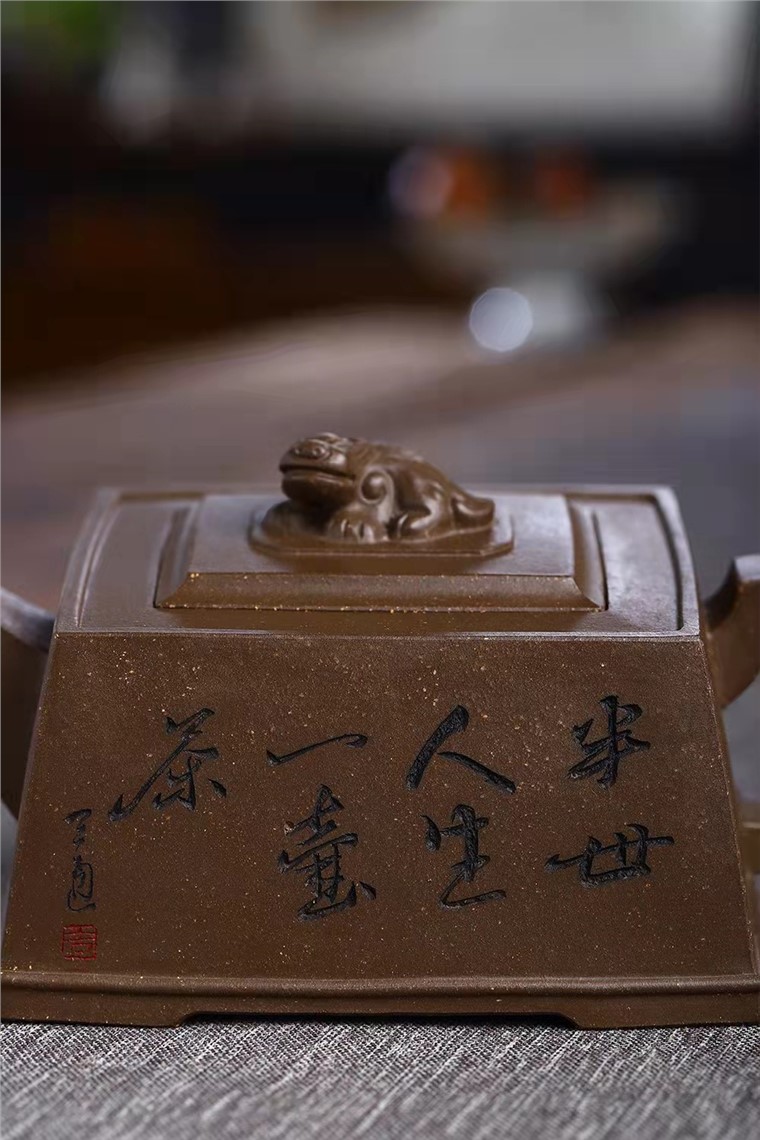 半世
人生
一壶
茶